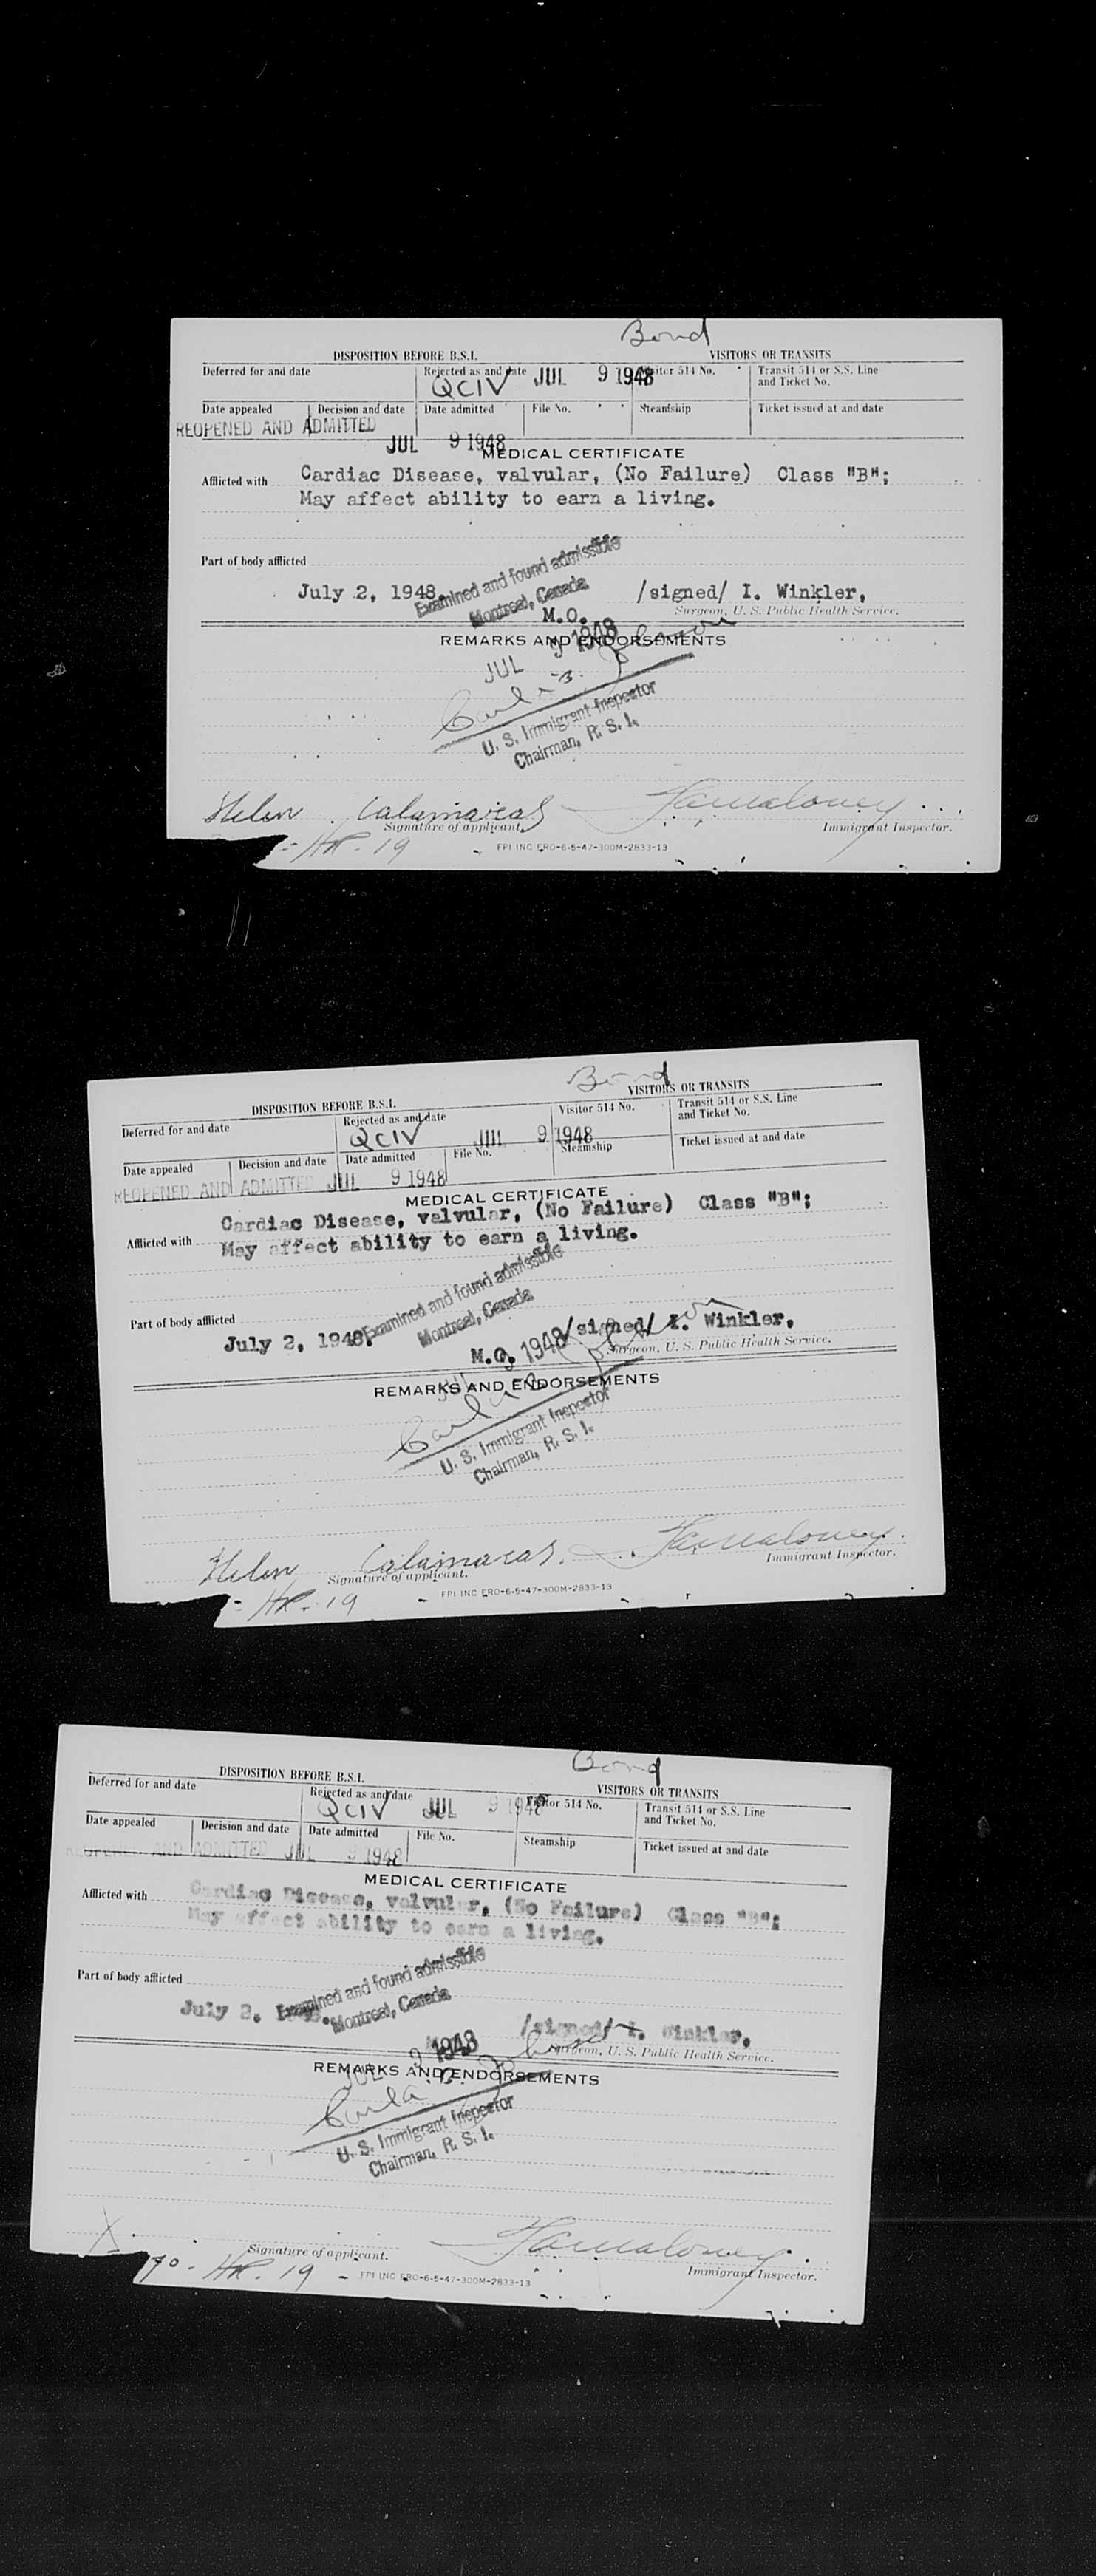 Bond
DISPOSITION BEFORE B.S.I. VISITORS OR TRANSITS
Deferred for and date Rejected as and date Visitor 514 No. Transit 514 or S.S. Line and Ticket No.
QCIV JUL 9 1948
Date appealed Decision and date Date admitted File No. Steamship Ticket issued at and date
REOPENED AND ADMITTED
JUL 9 1948
MEDICAL CERTIFICATE
Afflicted with Cardiac Disease, valvular, (No Failure) Class "B";
May affect ability to earn a living.
Part of body afflicted
Examined and found admissible
Montreal, Canada
July 2, 1948. /signed/ I. Winkler,
M.O. Surgeon, U. S. Public Health Service.
REMARKS AND ENDORSEMENTS
JUL 9 1948
U. S. Immigrant Inspector
Chairman, R. S. I.
Helen Calamaras
Signature of applicant. Immigrant Inspector.
19
FPI INC ERO-6-5-47-300M-2833-13
Bond
DISPOSITION BEFORE B.S.I. VISITORS OR TRANSITS
Deferred for and date Rejected as and date Visitor 514 No. Transit 514 or S.S. Line and Ticket No.
QCIV JUL 9 1948
Date appealed Decision and date Date admitted File No. Steamship Ticket issued at and date
REOPENED AND ADMITTED JUL 9 1948
MEDICAL CERTIFICATE
Cardiac Disease, valvular, (No Failure) Class "B";
Afflicted with May affect ability to earn a living.
Part of body afflicted
Examined and found admissible
Montreal, Canada
July 2, 1948. /signed/ I. Winkler,
M.O. 1948 Surgeon, U. S. Public Health Service.
REMARKS AND ENDORSEMENTS
U. S. Immigrant Inspector
Chairman, R. S. I.
Helen Calamaras.
Signature of applicant. Immigrant Inspector.
19
FPI INC ERO-6-5-47-300M-2833-13
Bond
DISPOSITION BEFORE B.S.I. VISITORS OR TRANSITS
Deferred for and date Rejected as and date Visitor 514 No. Transit 514 or S.S. Line and Ticket No.
QCIV JUL 9 1948
Date appealed Decision and date Date admitted File No. Steamship Ticket issued at and date
REOPENED AND ADMITTED JUL 9 1948
MEDICAL CERTIFICATE
Afflicted with Cardiac Disease, valvular, (No Failure) Class "B";
May affect ability to earn a living.
Part of body afflicted
Examined and found admissible
Montreal, Canada
July 2, /signed/ I. Winkler,
Surgeon, U. S. Public Health Service.
JUL 9 1948
REMARKS AND ENDORSEMENTS
U. S. Immigrant Inspector
Chairman, R. S. I.
X
Signature of applicant. Immigrant Inspector.
19
FPI INC ERO-6-5-47-300M-2833-13